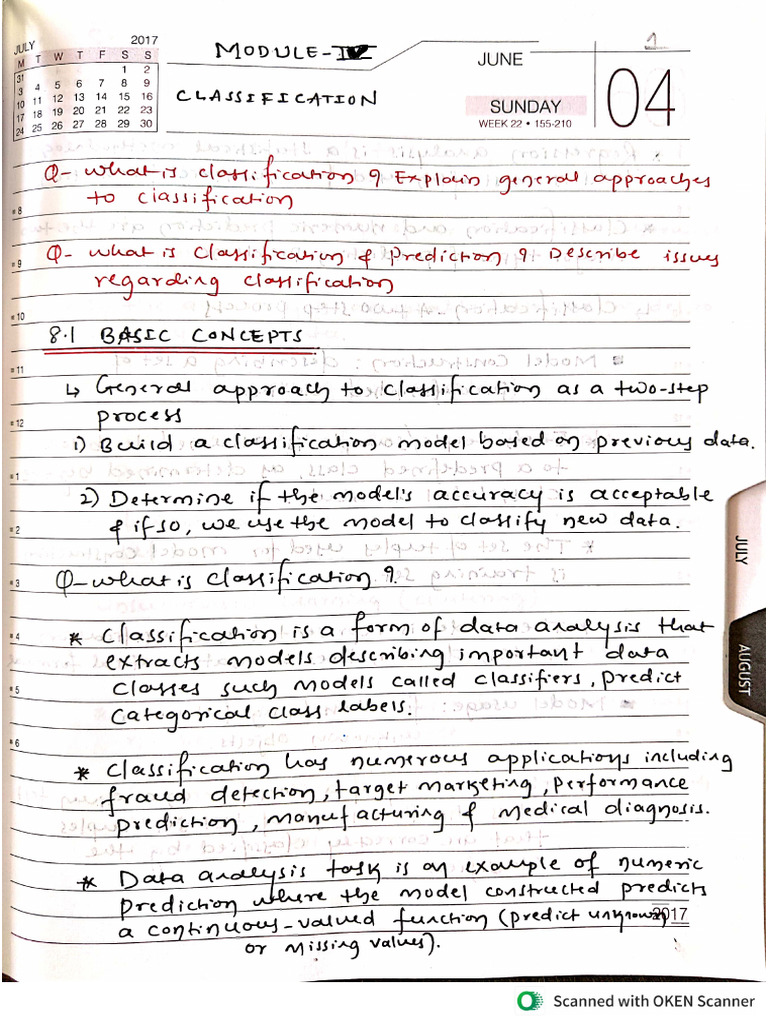 JULY 2017
M T W T F S S
31 1 2
3 4 5 6 7 8 9
10 11 12 13 14 15 16
17 18 19 20 21 22 23
24 25 26 27 28 29 30
MODULE-IV
CLASSIFICATION
JUNE
SUNDAY
WEEK 22 • 155-210
04
1
Q- what is classification? Explain general approaches
to classification
8
Q- what is Classification & Prediction? Describe issues
9
regarding classification
10
8.1 BASIC CONCEPTS
11
↳ General approach to classification as a two-step
process
12
1) Build a classification model based on previous data.
1
2) Determine if the model's accuracy is acceptable
& if so, we use the model to classify new data.
2
Q- what is Classification?
3
* Classification is a form of data analysis that
4
extracts models describing important data
classes such models called classifiers, predict
5
categorical class labels.
6
* Classification has numerous applications including
fraud detection, target marketing, performance
prediction, manufacturing & medical diagnosis.
* Data analysis task is an example of numeric
prediction where the model constructed predicts
a continuous-valued function (predict unknown
2017
or missing values).
JULY
AUGUST
Scanned with OKEN Scanner